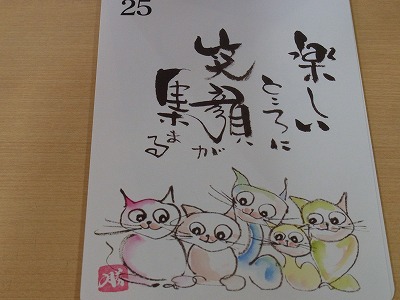 25
楽しい
ところに
笑顔が
集まる